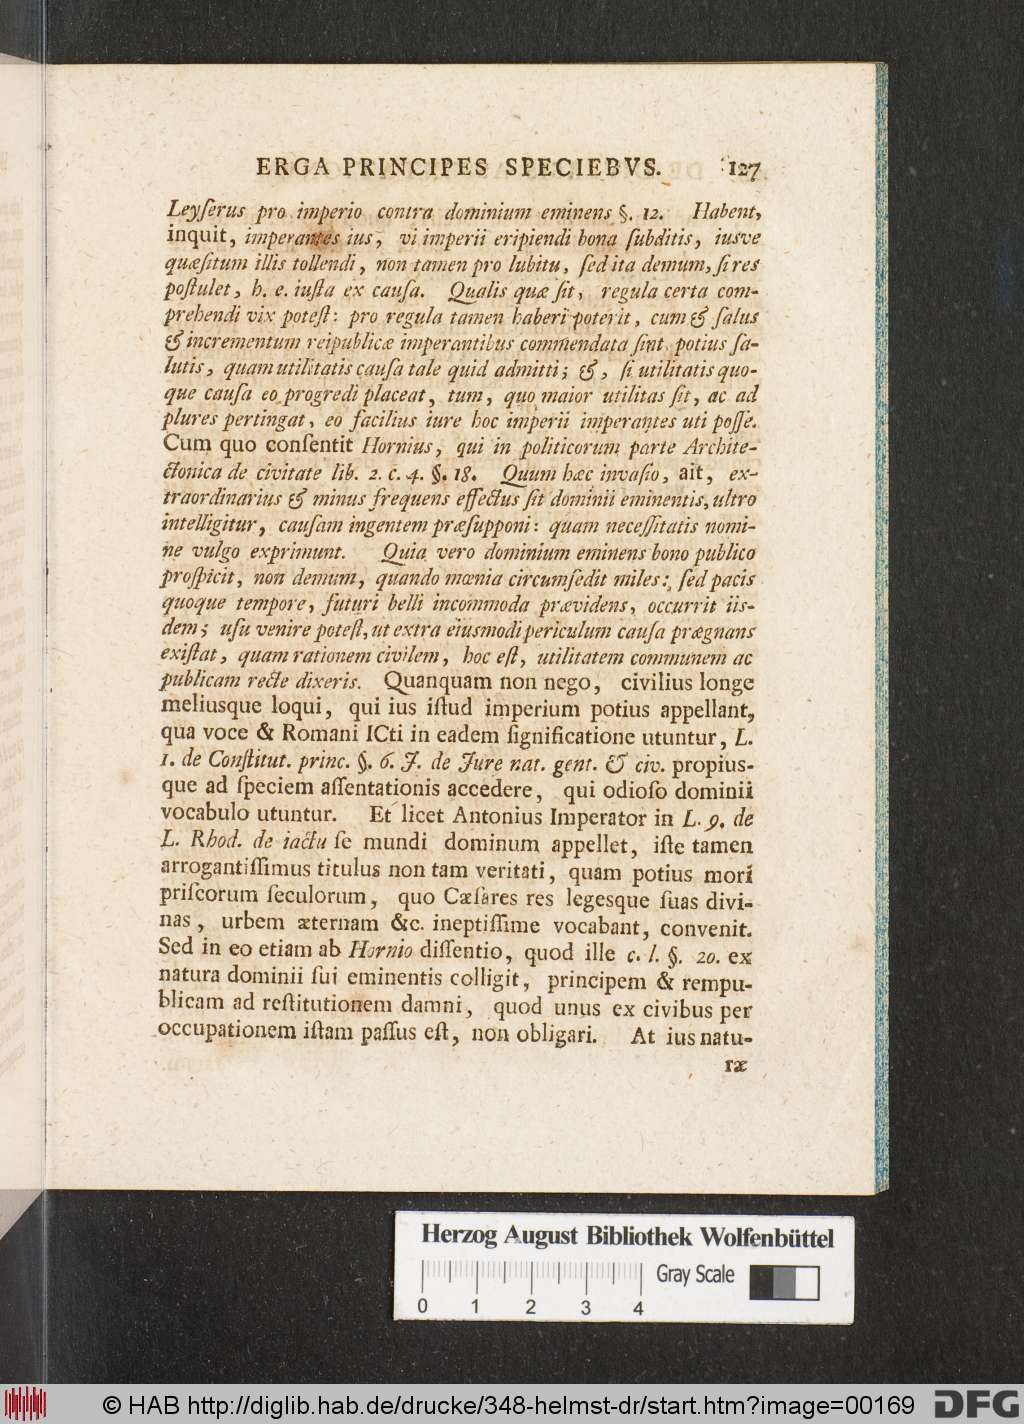 ERGA PRINCIPES SPECIEBVS. 127
Leyſerus pro imperio contra dominium eminens §. 12. Habent,
inquit, imperantes ius, vi imperii eripiendi bona ſubditis, iusve
quæſitum illis tollendi, non tamen pro lubitu, ſed ita demum, ſi res
poſtulet, h. e. iuſta ex cauſa. Qualis quæ ſit, regula certa com-
prehendi vix poteſt: pro regula tamen haberi poterit, cum & ſalus
& incrementum reipublicæ imperantibus commendata ſint potius ſa-
lutis, quam utilitatis cauſa tale quid admitti; &, ſi utilitatis quo-
que cauſa eo progredi placeat, tum, quo maior utilitas ſit, ac ad
plures pertingat, eo facilius iure hoc imperii imperantes uti poſſe.
Cum quo conſentit Hornius, qui in politicorum parte Archite-
ctonica de civitate lib. 2. c. 4. §. 18. Quum hæc invaſio, ait, ex-
traordinarius & minus frequens effectus ſit dominii eminentis, ultro
intelligitur, cauſam ingentem præſupponi: quam neceſſitatis nomi-
ne vulgo exprimunt. Quia vero dominium eminens bono publico
proſpicit, non demum, quando mœnia circumſedit miles: ſed pacis
quoque tempore, futuri belli incommoda prævidens, occurrit iis-
dem; uſu venire poteſt, ut extra eiusmodi periculum cauſa prægnans
exiſtat, quam rationem civilem, hoc eſt, utilitatem communem ac
publicam recte dixeris. Quanquam non nego, civilius longe
meliusque loqui, qui ius iſtud imperium potius appellant,
qua voce & Romani ICti in eadem ſignificatione utuntur, L.
1. de Conſtitut. princ. §. 6. J. de Jure nat. gent. & civ. propius-
que ad ſpeciem aſſentationis accedere, qui odioſo dominii
vocabulo utuntur. Et licet Antonius Imperator in L. 9. de
L. Rhod. de iactu ſe mundi dominum appellet, iſte tamen
arrogantiſſimus titulus non tam veritati, quam potius mori
priſcorum ſeculorum, quo Cæſares res legesque ſuas divi-
nas, urbem æternam &c. ineptiſſime vocabant, convenit.
Sed in eo etiam ab Hornio diſſentio, quod ille c. l. §. 20. ex
natura dominii ſui eminentis colligit, principem & rempu-
blicam ad reſtitutionem damni, quod unus ex civibus per
occupationem iſtam paſſus eſt, non obligari. At ius natu-
ræ
Herzog August Bibliothek Wolfenbüttel
Gray Scale
0 1 2 3 4
© HAB http://diglib.hab.de/drucke/348-helmst-dr/start.htm?image=00169
DFG